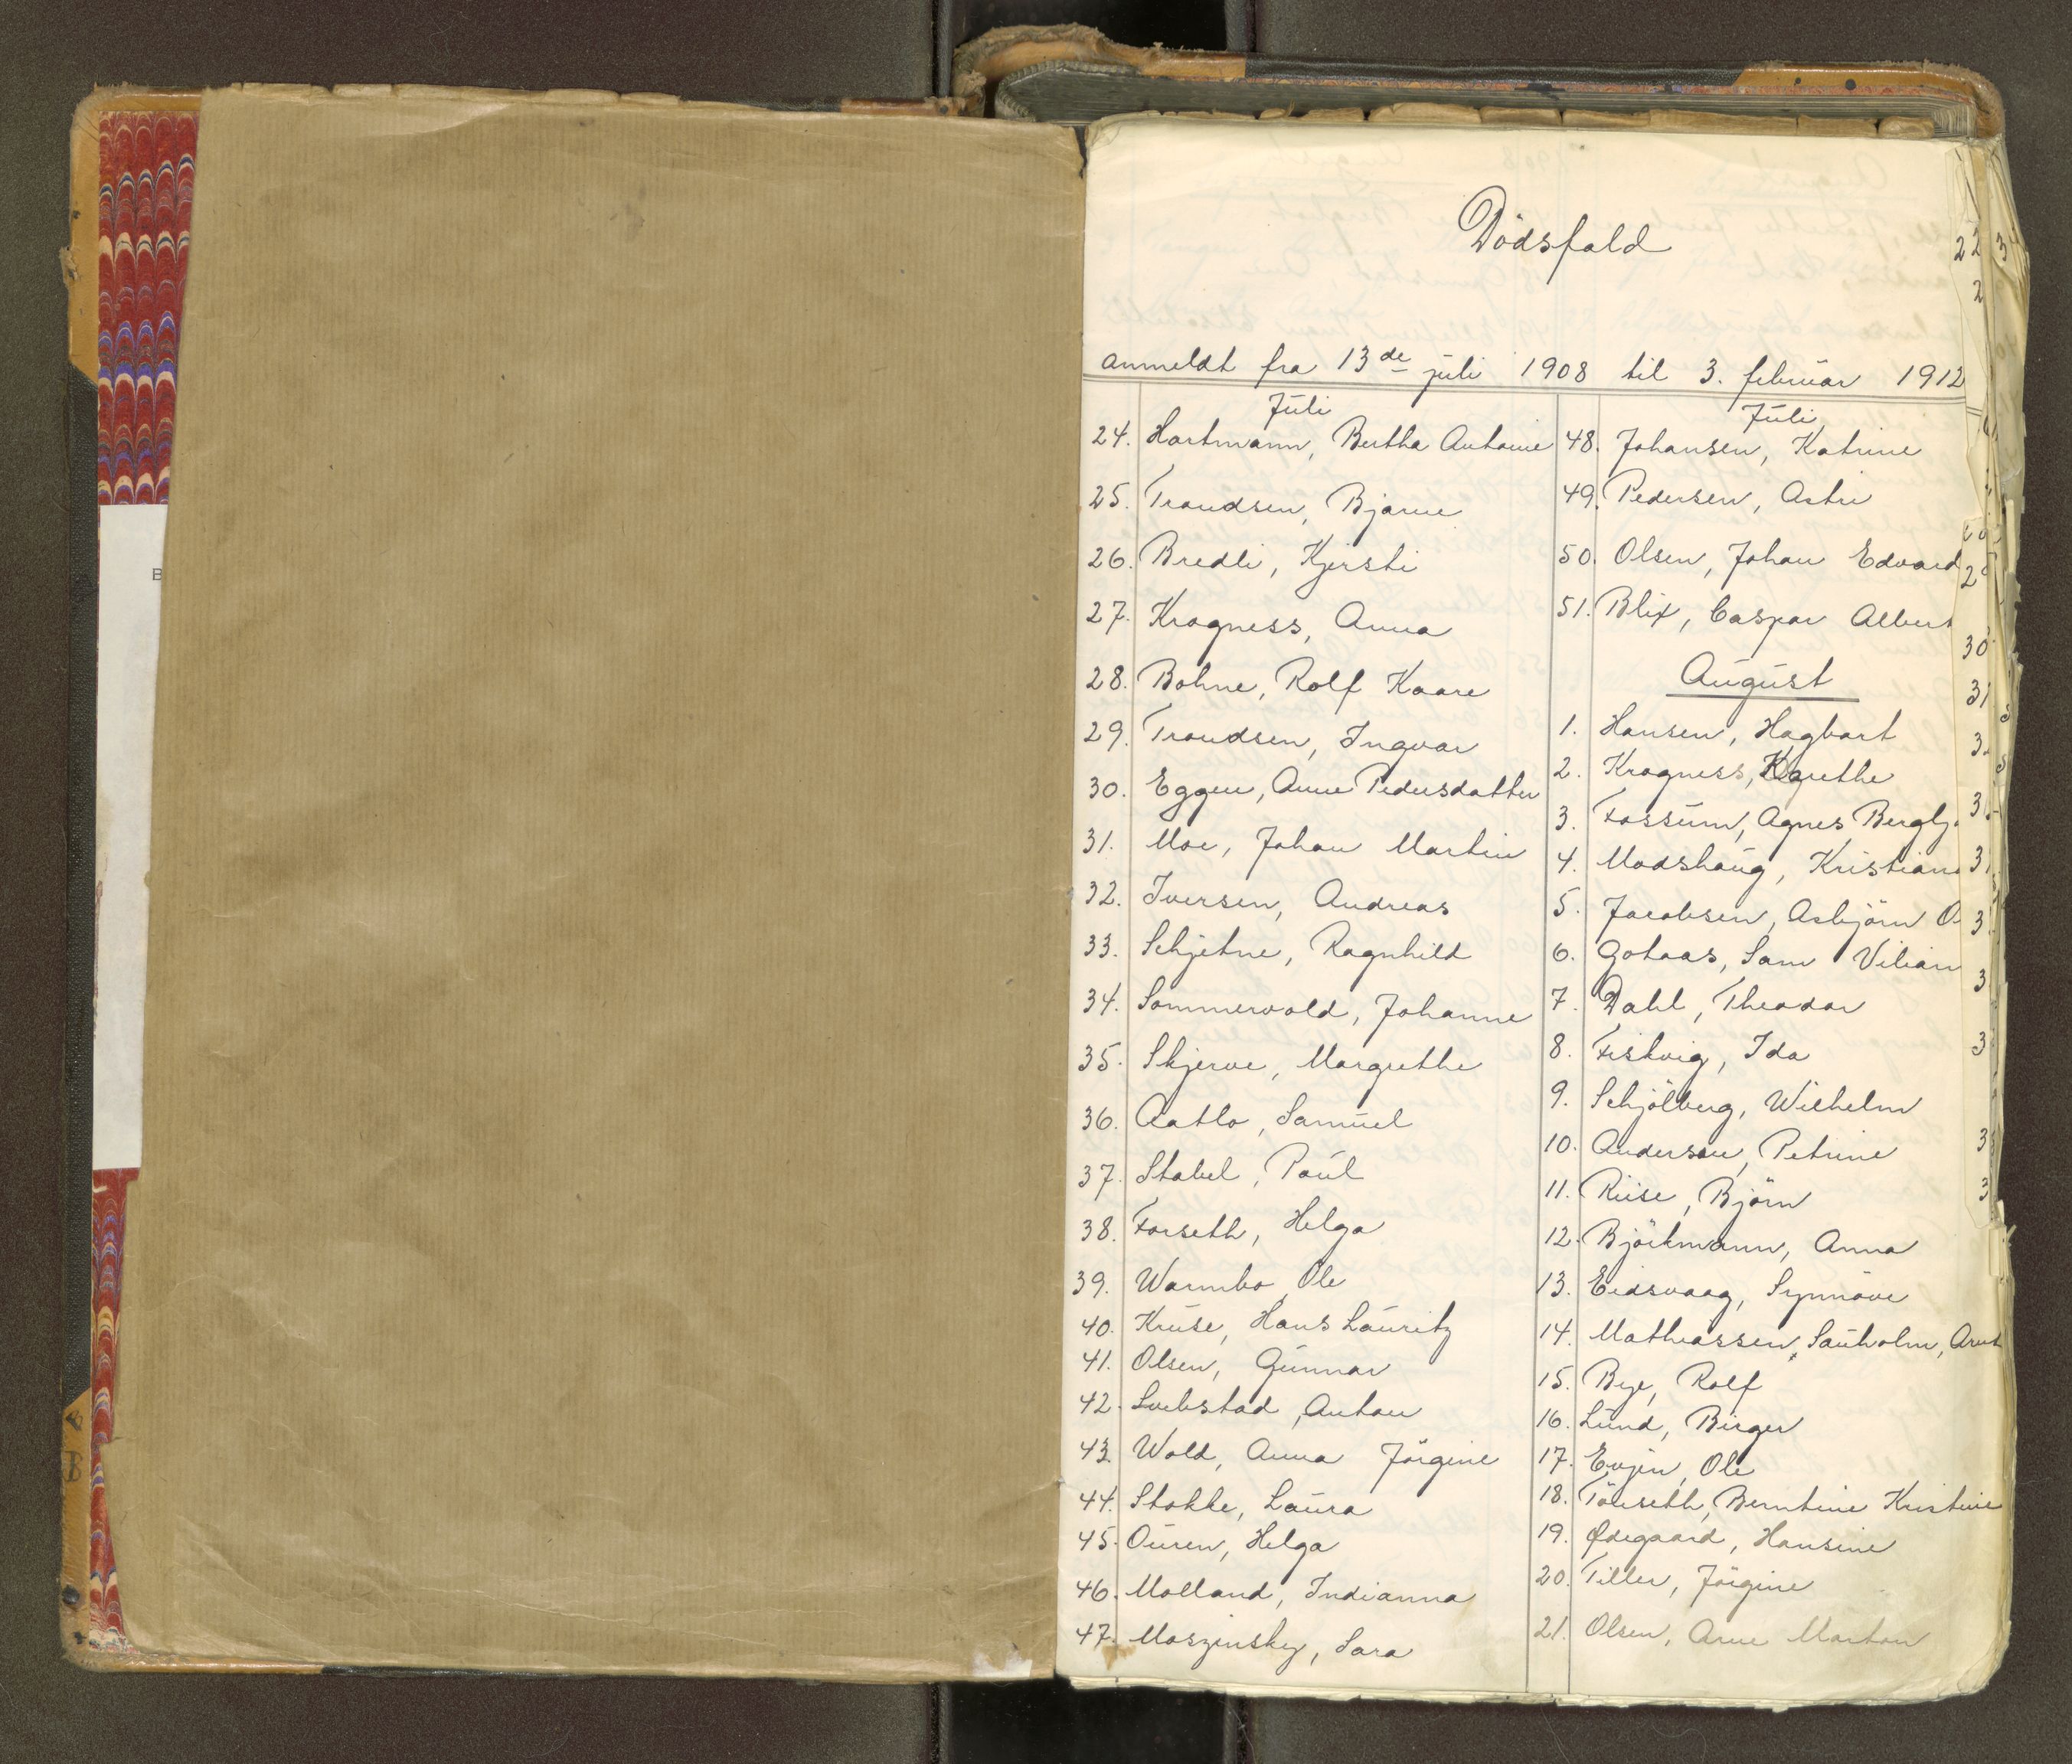 Dödsfald
anmeldt fra 13de juli 1908 til 3. februar 1912
Juli
24. Hartmann, Bertha Antonie
25. Trondsen, Bjarne
26. Bredli, Kjersti
27. Kragness, Anna
28. Bohne, Rolf Kaare
29. Trondsen, Ingvar
30. Eggen, Anne Pedersdatter
31. Moe, Johan Martin
32. Iversen, Andreas
33. Schjetne, Ragnhild
34. Sommervold, Johanne
35. Skjerve, Margrethe
36. Aatlo, Samuel
37. Stabel, Paul
38. Forseth, Helga
39. Warmbo, Ole
40. Kruse, Hans Lauritz
41. Olsen, Gunnar
42. Anton
43. Wold, Anna Jörgine
44. Stokke, Laura
45. Ouren, Helga
46. Molland, Indianna
47. Moszinsky, Sara
Juli
48. Johansen, Katrine
49. Pedersen, Astri
50. Olsen, Johan Edvard
51. Blix, Caspar Albert
August
1. Hansen, Hagbart
2. Kragness, Kgrethe
3. Fossum, Agnes Berglj
4. Madshaug, Kristian
5. Jacobsen, Asbjörn O
6. Gotaas, Sam Viliam
7. Dahl, Theodor
8. Fiskvig, Ida
9. Schjölberg, Wilhelm
10. Anderson, Petrine
11. Riise, Björn
12. Björkmann, Anna
13. Eidsvaag, Synnöve
14. Mathiassen, Sauholm, Arnt
15. Bye, Rolf
16. Lund, Birger
17. Evjen, Ole
18. Tönseth, Berntine Kristine
19. Ødegaard, Hansine
20. Tiller, Jörgine
21. Olsen, Arne Morton